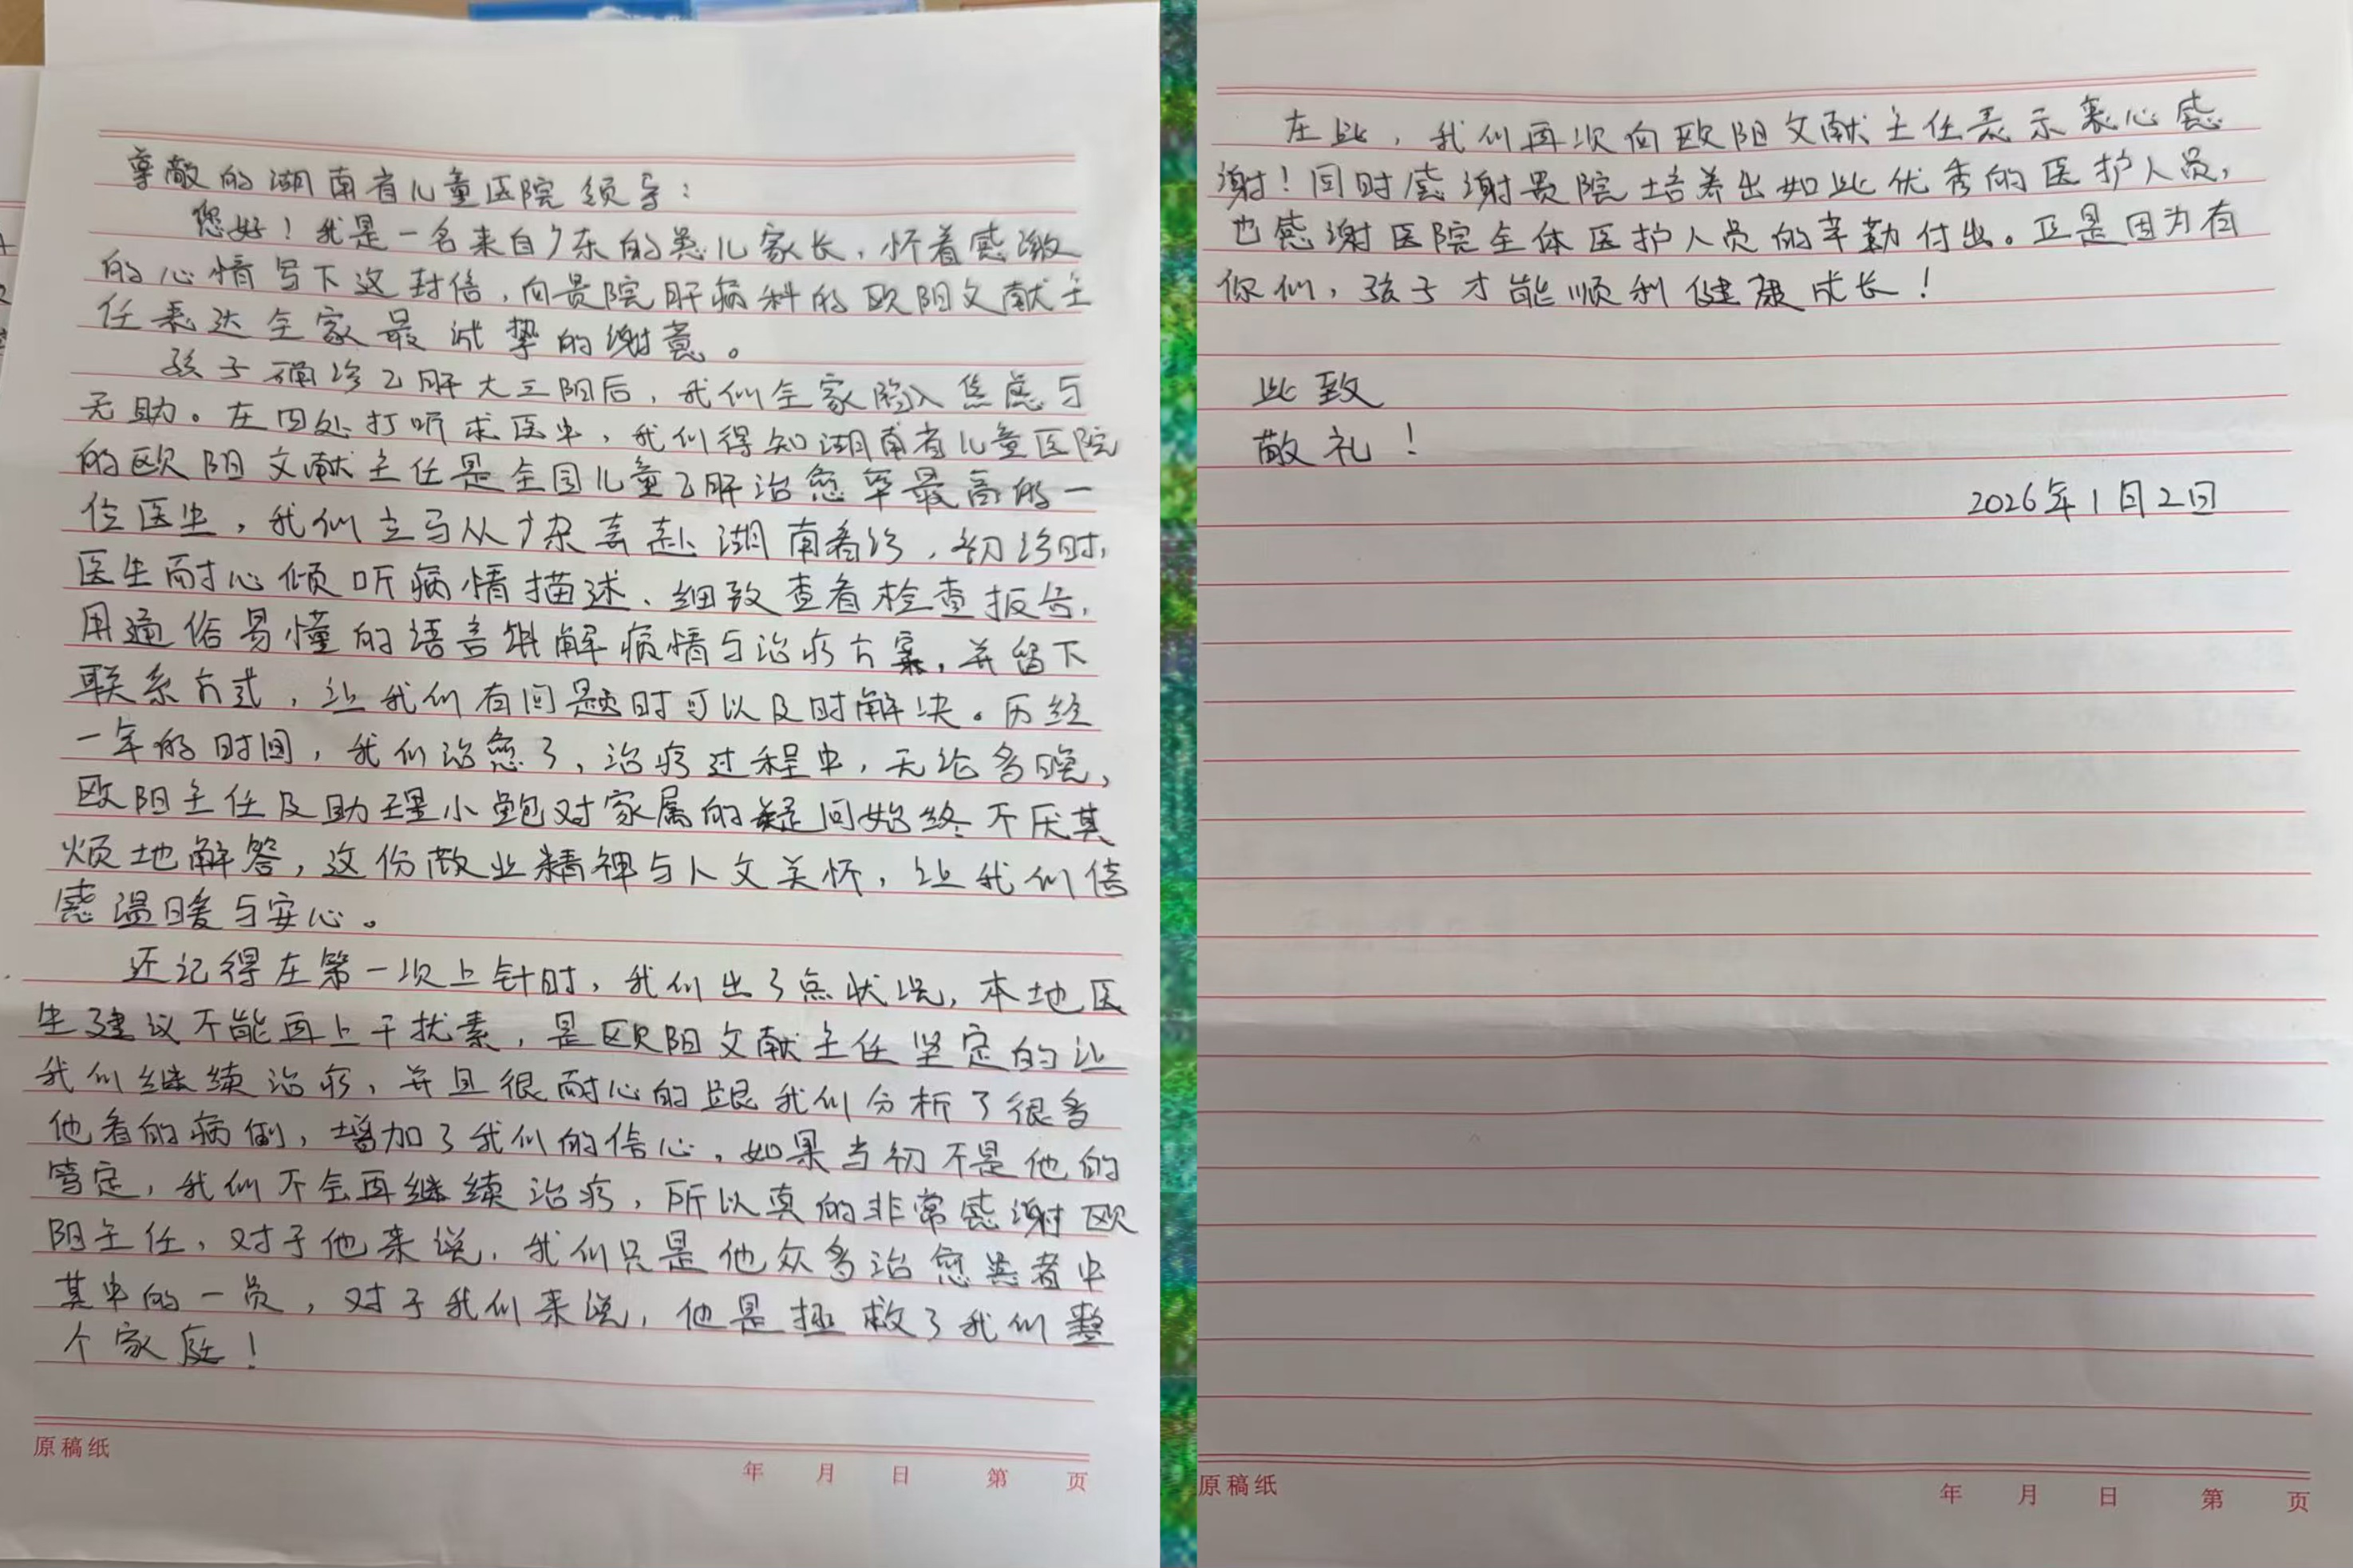 尊敬的湖南省儿童医院领导：
您好！我是一名来自广东的患儿家长，怀着感激
的心情写下这封信，向贵院肝病科的欧阳文献主
任表达全家最诚挚的谢意。
孩子确诊乙肝大三阳后，我们全家陷入焦虑与
无助。在四处打听求医中，我们得知湖南省儿童医院
的欧阳文献主任是全国儿童乙肝治愈率最高的一
位医生，我们立马从广东奔赴湖南看诊，初诊时，
医生耐心倾听病情描述、细致查看检查报告，
用通俗易懂的语言讲解病情与治疗方案，并留下
联系方式，让我们有问题时可以及时解决。历经
一年的时间，我们治愈了，治疗过程中，无论多晚，
欧阳主任及助理小鲍对家属的疑问始终不厌其
烦地解答，这份敬业精神与人文关怀，让我们倍
感温暖与安心。
还记得在第一次上针时，我们出了点状况，本地医
生建议不能再上干扰素，是欧阳文献主任坚定的让
我们继续治疗，并且很耐心的跟我们分析了很多
他看的病例，增加了我们的信心，如果当初不是他的
笃定，我们不会再继续治疗，所以真的非常感谢欧
阳主任，对于他来说，我们只是他众多治愈患者中
其中的一员，对于我们来说，他是拯救了我们整
个家庭！
原稿纸
年 月 日 第 页
在此，我们再次向欧阳文献主任表示衷心感
谢！同时感谢贵院培养出如此优秀的医护人员，
也感谢医院全体医护人员的辛勤付出。正是因为有
你们，孩子才能顺利健康成长！
此致
敬礼！
2026年1月2日
原稿纸
年 月 日 第 页